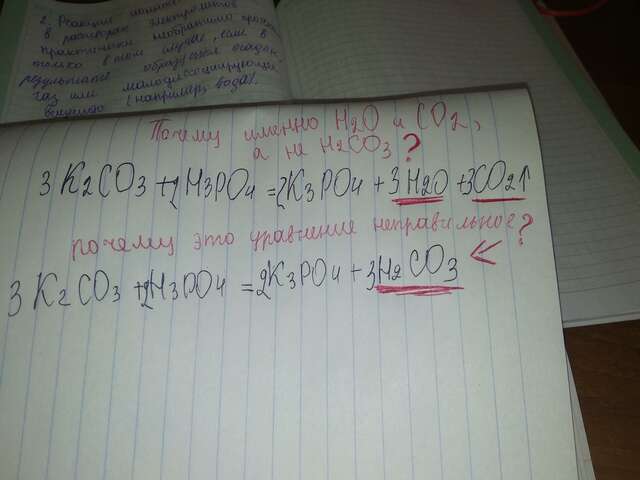 2. Реакции ионного
в растворах электролитов
практически необратимо протек
только в том случае, если в
результате образуется осадок,
газ или малодиссоциирующее
вещество (например, вода).
Почему именно H2O и CO2,
а не H2CO3?
3K2CO3+2H3PO4=2K3PO4+3H2O+3CO2↑
почему это уравнение неправильное?
3K2CO3+2H3PO4=2K3PO4+3H2CO3